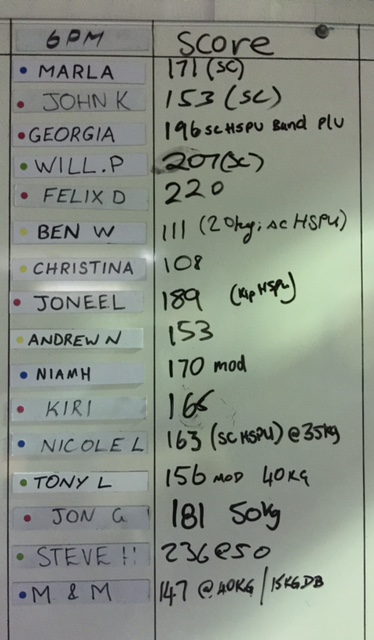 6PM SCORE
MARLA 171 (SC)
JOHN K 153 (SC)
GEORGIA 196 SC HSPU Band Plu
WILL.P 207 (SC)
FELIX D 220
BEN W 111 (20kg; SC HSPU)
CHRISTINA 108
JONEEL 189 (Kip HSPU)
ANDREW N 153
NIAMH 170 mod
KIRI 166
NICOLE L 163 (SC HSPU) @ 35kg
TONY L 156 MOD 40KG
JON G 181 50kg
STEVE H 236 @ 50
M & M 147 @ 40KG / 15KG DB